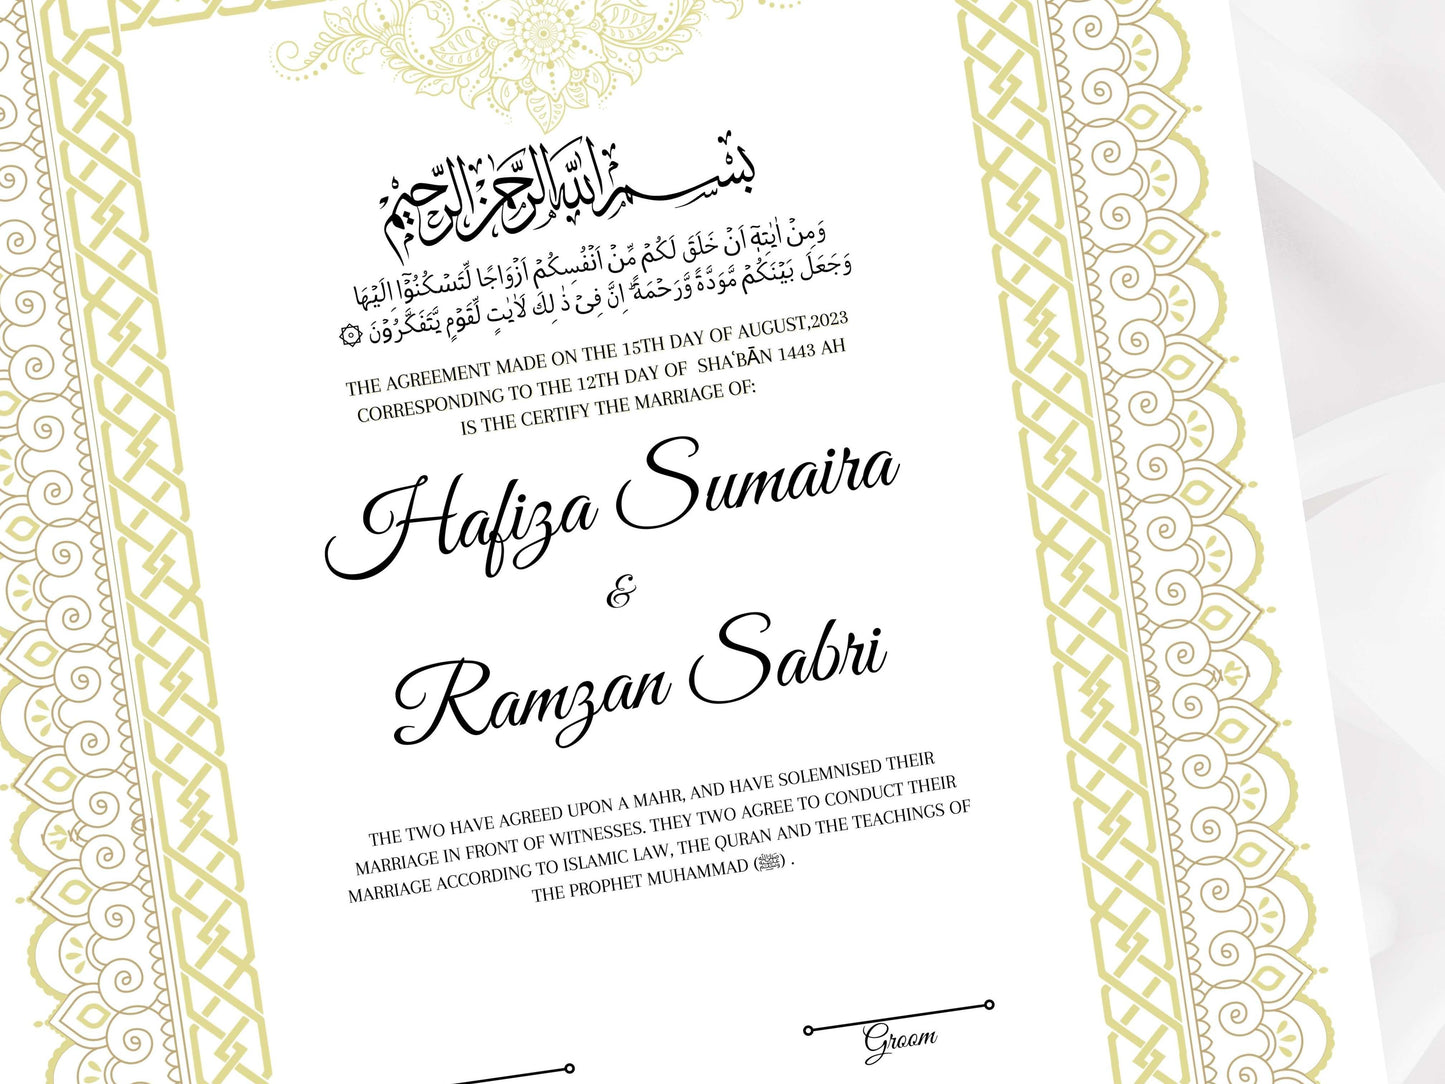 بسم الله الرحمن الرحيم
وَمِنْ اٰيٰتِهٖٓ اَنْ خَلَقَ لَكُمْ مِّنْ اَنْفُسِكُمْ اَزْوَاجًا لِّتَسْكُنُوْٓا اِلَيْهَا
وَجَعَلَ بَيْنَكُمْ مَّوَدَّةً وَّرَحْمَةً ؕ اِنَّ فِيْ ذٰ لِكَ لَاٰيٰتٍ لِّقَوْمٍ يَّتَفَكَّرُوْنَ ۞
THE AGREEMENT MADE ON THE 15TH DAY OF AUGUST,2023
CORRESPONDING TO THE 12TH DAY OF SHAʿBĀN 1443 AH
IS THE CERTIFY THE MARRIAGE OF:
Hafiza Sumaira
&
Ramzan Sabri
THE TWO HAVE AGREED UPON A MAHR, AND HAVE SOLEMNISED THEIR
MARRIAGE IN FRONT OF WITNESSES. THEY TWO AGREE TO CONDUCT THEIR
MARRIAGE ACCORDING TO ISLAMIC LAW, THE QURAN AND THE TEACHINGS OF
THE PROPHET MUHAMMAD (ﷺ) .
Groom